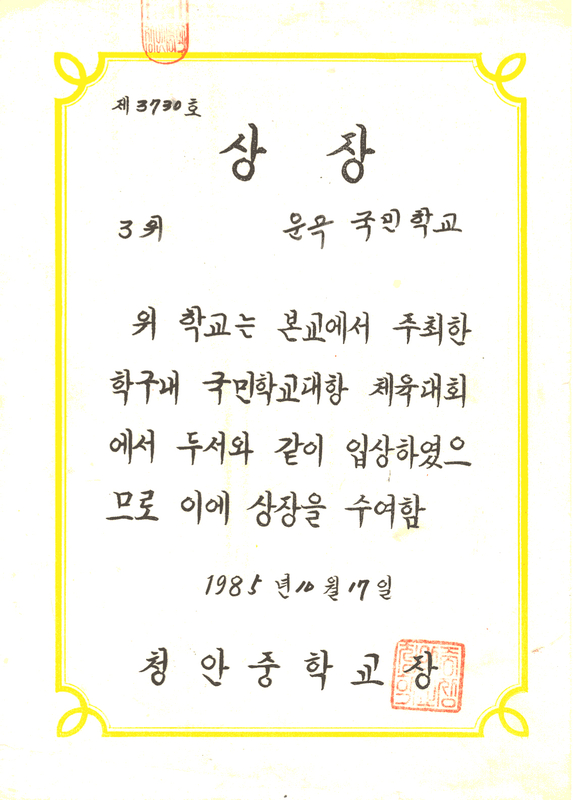 제 3730호
상 장
3위 운곡 국민학교
위 학교는 본교에서 주최한
학구내 국민학교대항 체육대회
에서 두서와 같이 입상하였으
므로 이에 상장을 수여함
1985년 10월 17일
청안중학교장